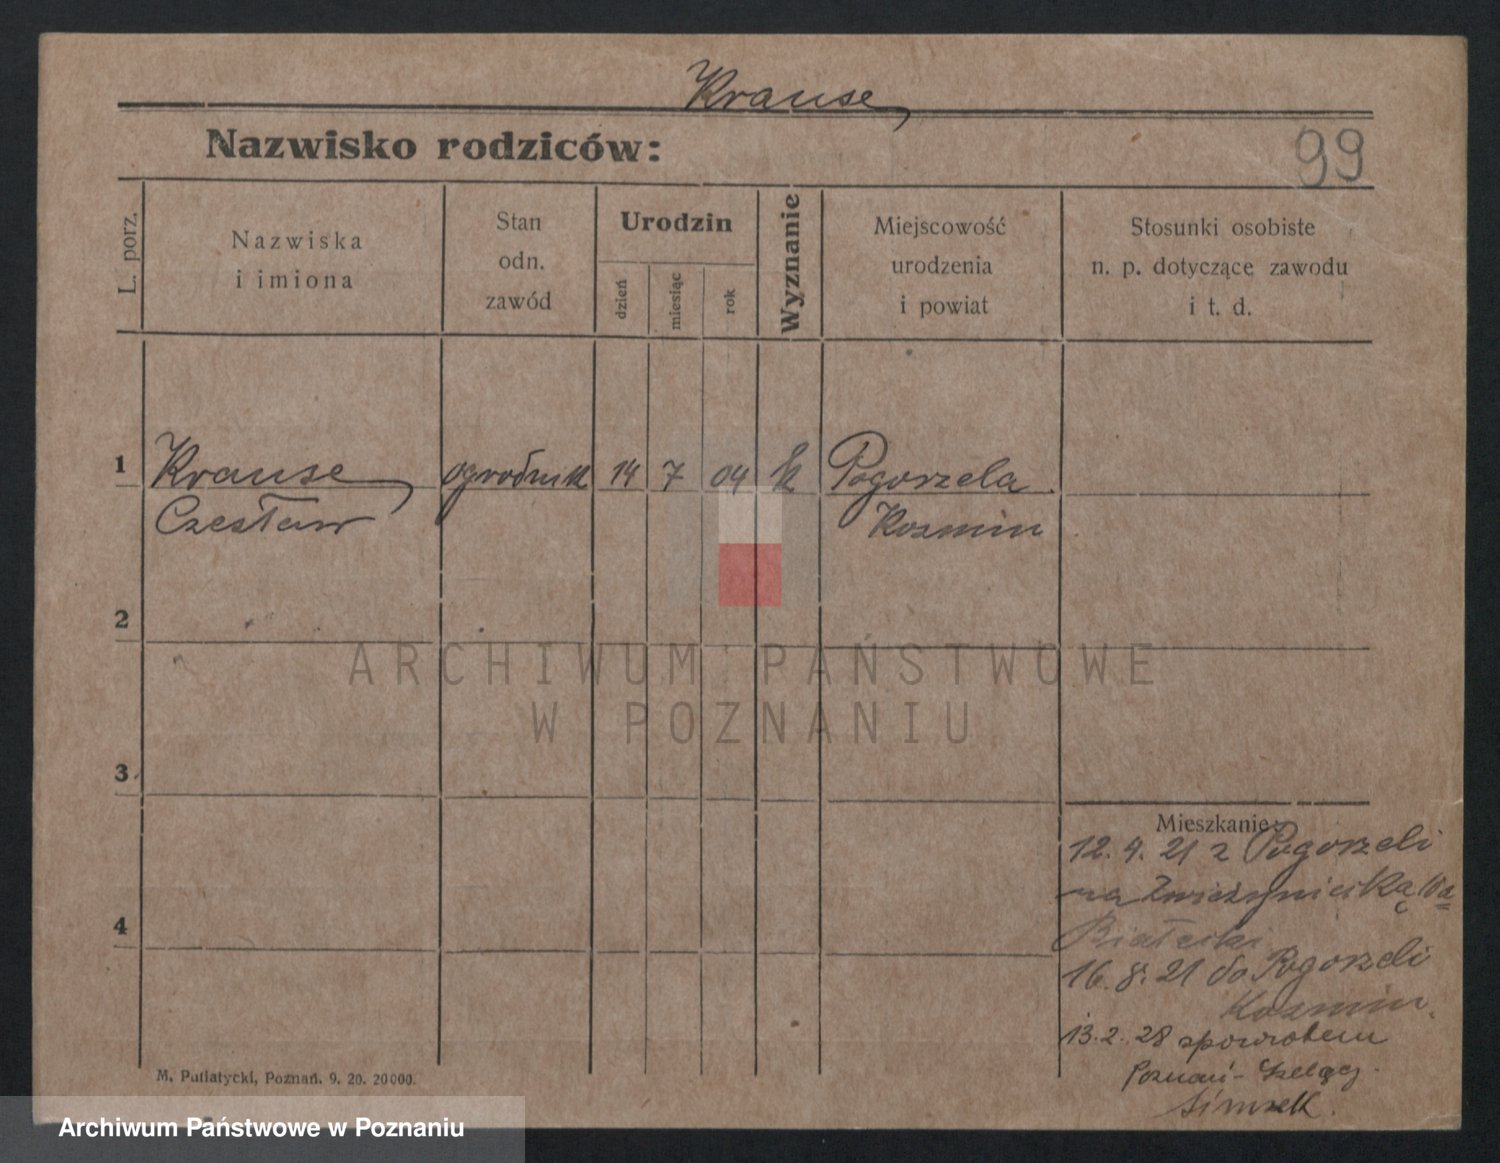 Krause
Nazwisko rodziców:
99
L. porz.
Nazwiska
i imiona
Stan
odn.
zawód
Urodzin
dzień
miesiąc
rok
Wyznanie
Miejscowość
urodzenia
i powiat
Stosunki osobiste
n. p. dotyczące zawodu
i t. d.
1 Krause ogrodnik 14 7 04 k Pogorzela
Czesław Kozmin
2
ARCHIWUM PAŃSTWOWE
W POZNANIU
3
Mieszkanie:
12.4.21 z Pogorzeli
na Zwierzyniecką 10a
4
16.8.21 do Pogorzeli
Kozmin.
13.2.28 spowrotem
Poznań-
M. Putiatycki, Poznań. 9. 20. 20000.
Archiwum Państwowe w Poznaniu